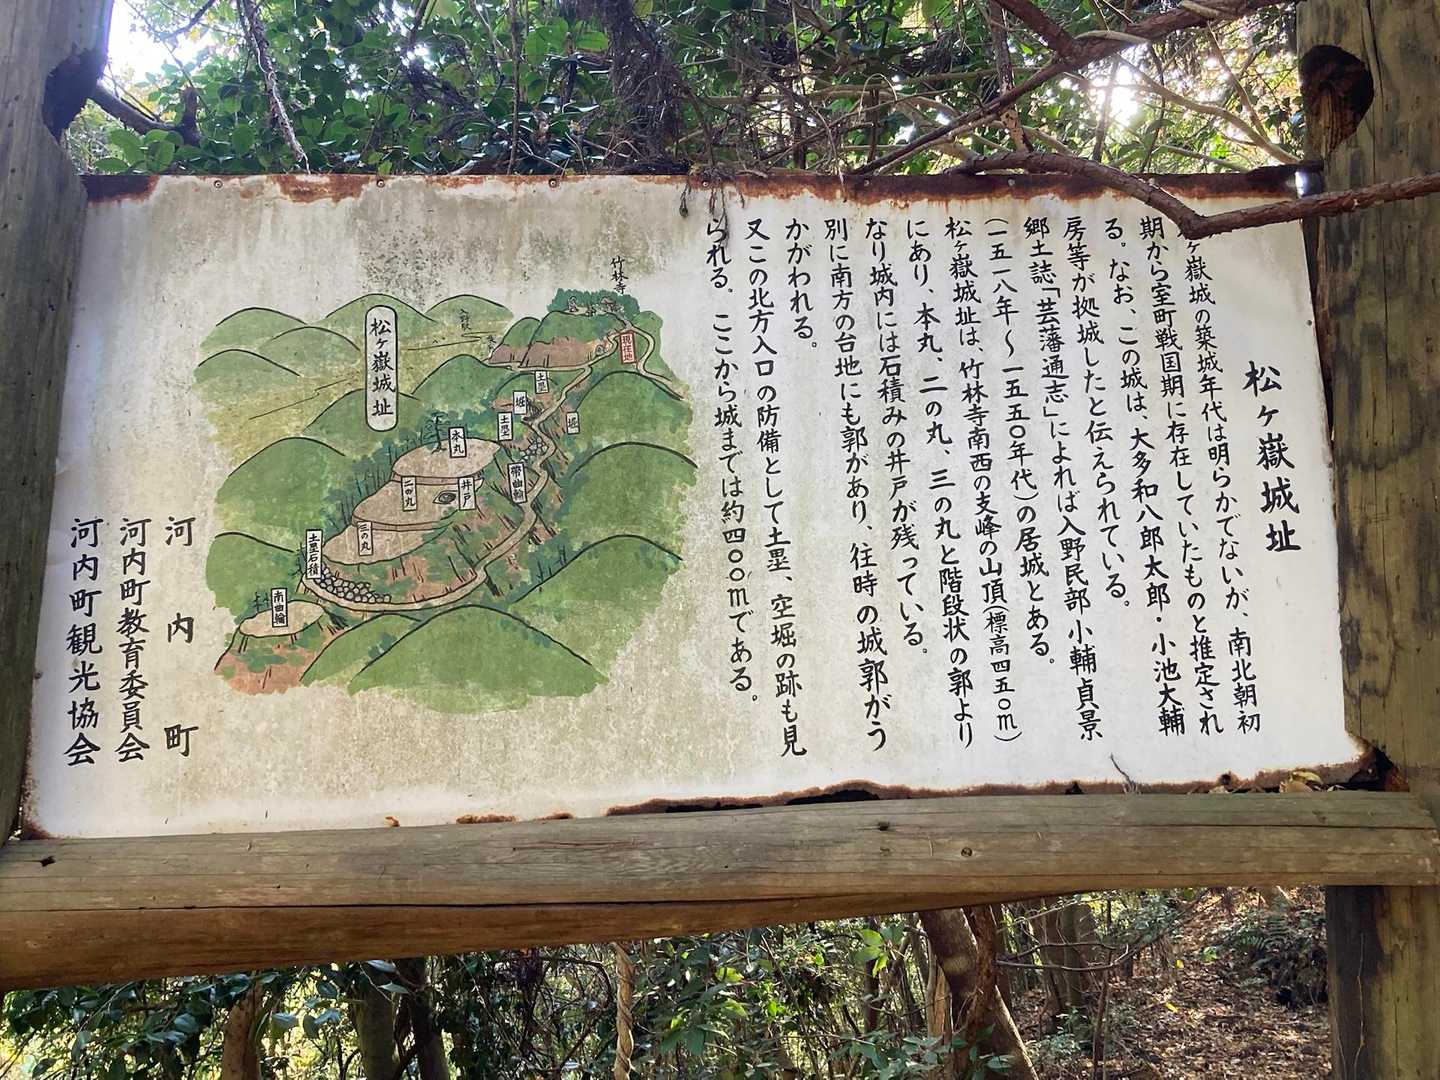 松ヶ嶽城址
ヶ嶽城の築城年代は明らかでないが、南北朝初
期から室町戦国期に存在していたものと推定され
る。なお、この城は、大多和八郎太郎・小池大輔
房等が拠城したと伝えられている。
郷土誌「芸藩通志」によれば入野民部小輔貞景
(一五一八年～一五五〇年代)の居城とある。
松ヶ嶽城址は、竹林寺南西の支峰の山頂(標高四五〇m)
にあり、本丸、二の丸、三の丸と階段状の郭より
なり城内には石積みの井戸が残っている。
別に南方の台地にも郭があり、往時の城郭がう
かがわれる。
又この北方入口の防備として土塁、空堀の跡も見
られる。ここから城までは約四〇〇mである。
竹林寺
現在地
入野駅
松ヶ嶽城址
土塁
堀
堀
土塁
本丸
帯曲輪
井戸
二の丸
三の丸
土塁石積
南曲輪
河内町
河内町教育委員会
河内町観光協会